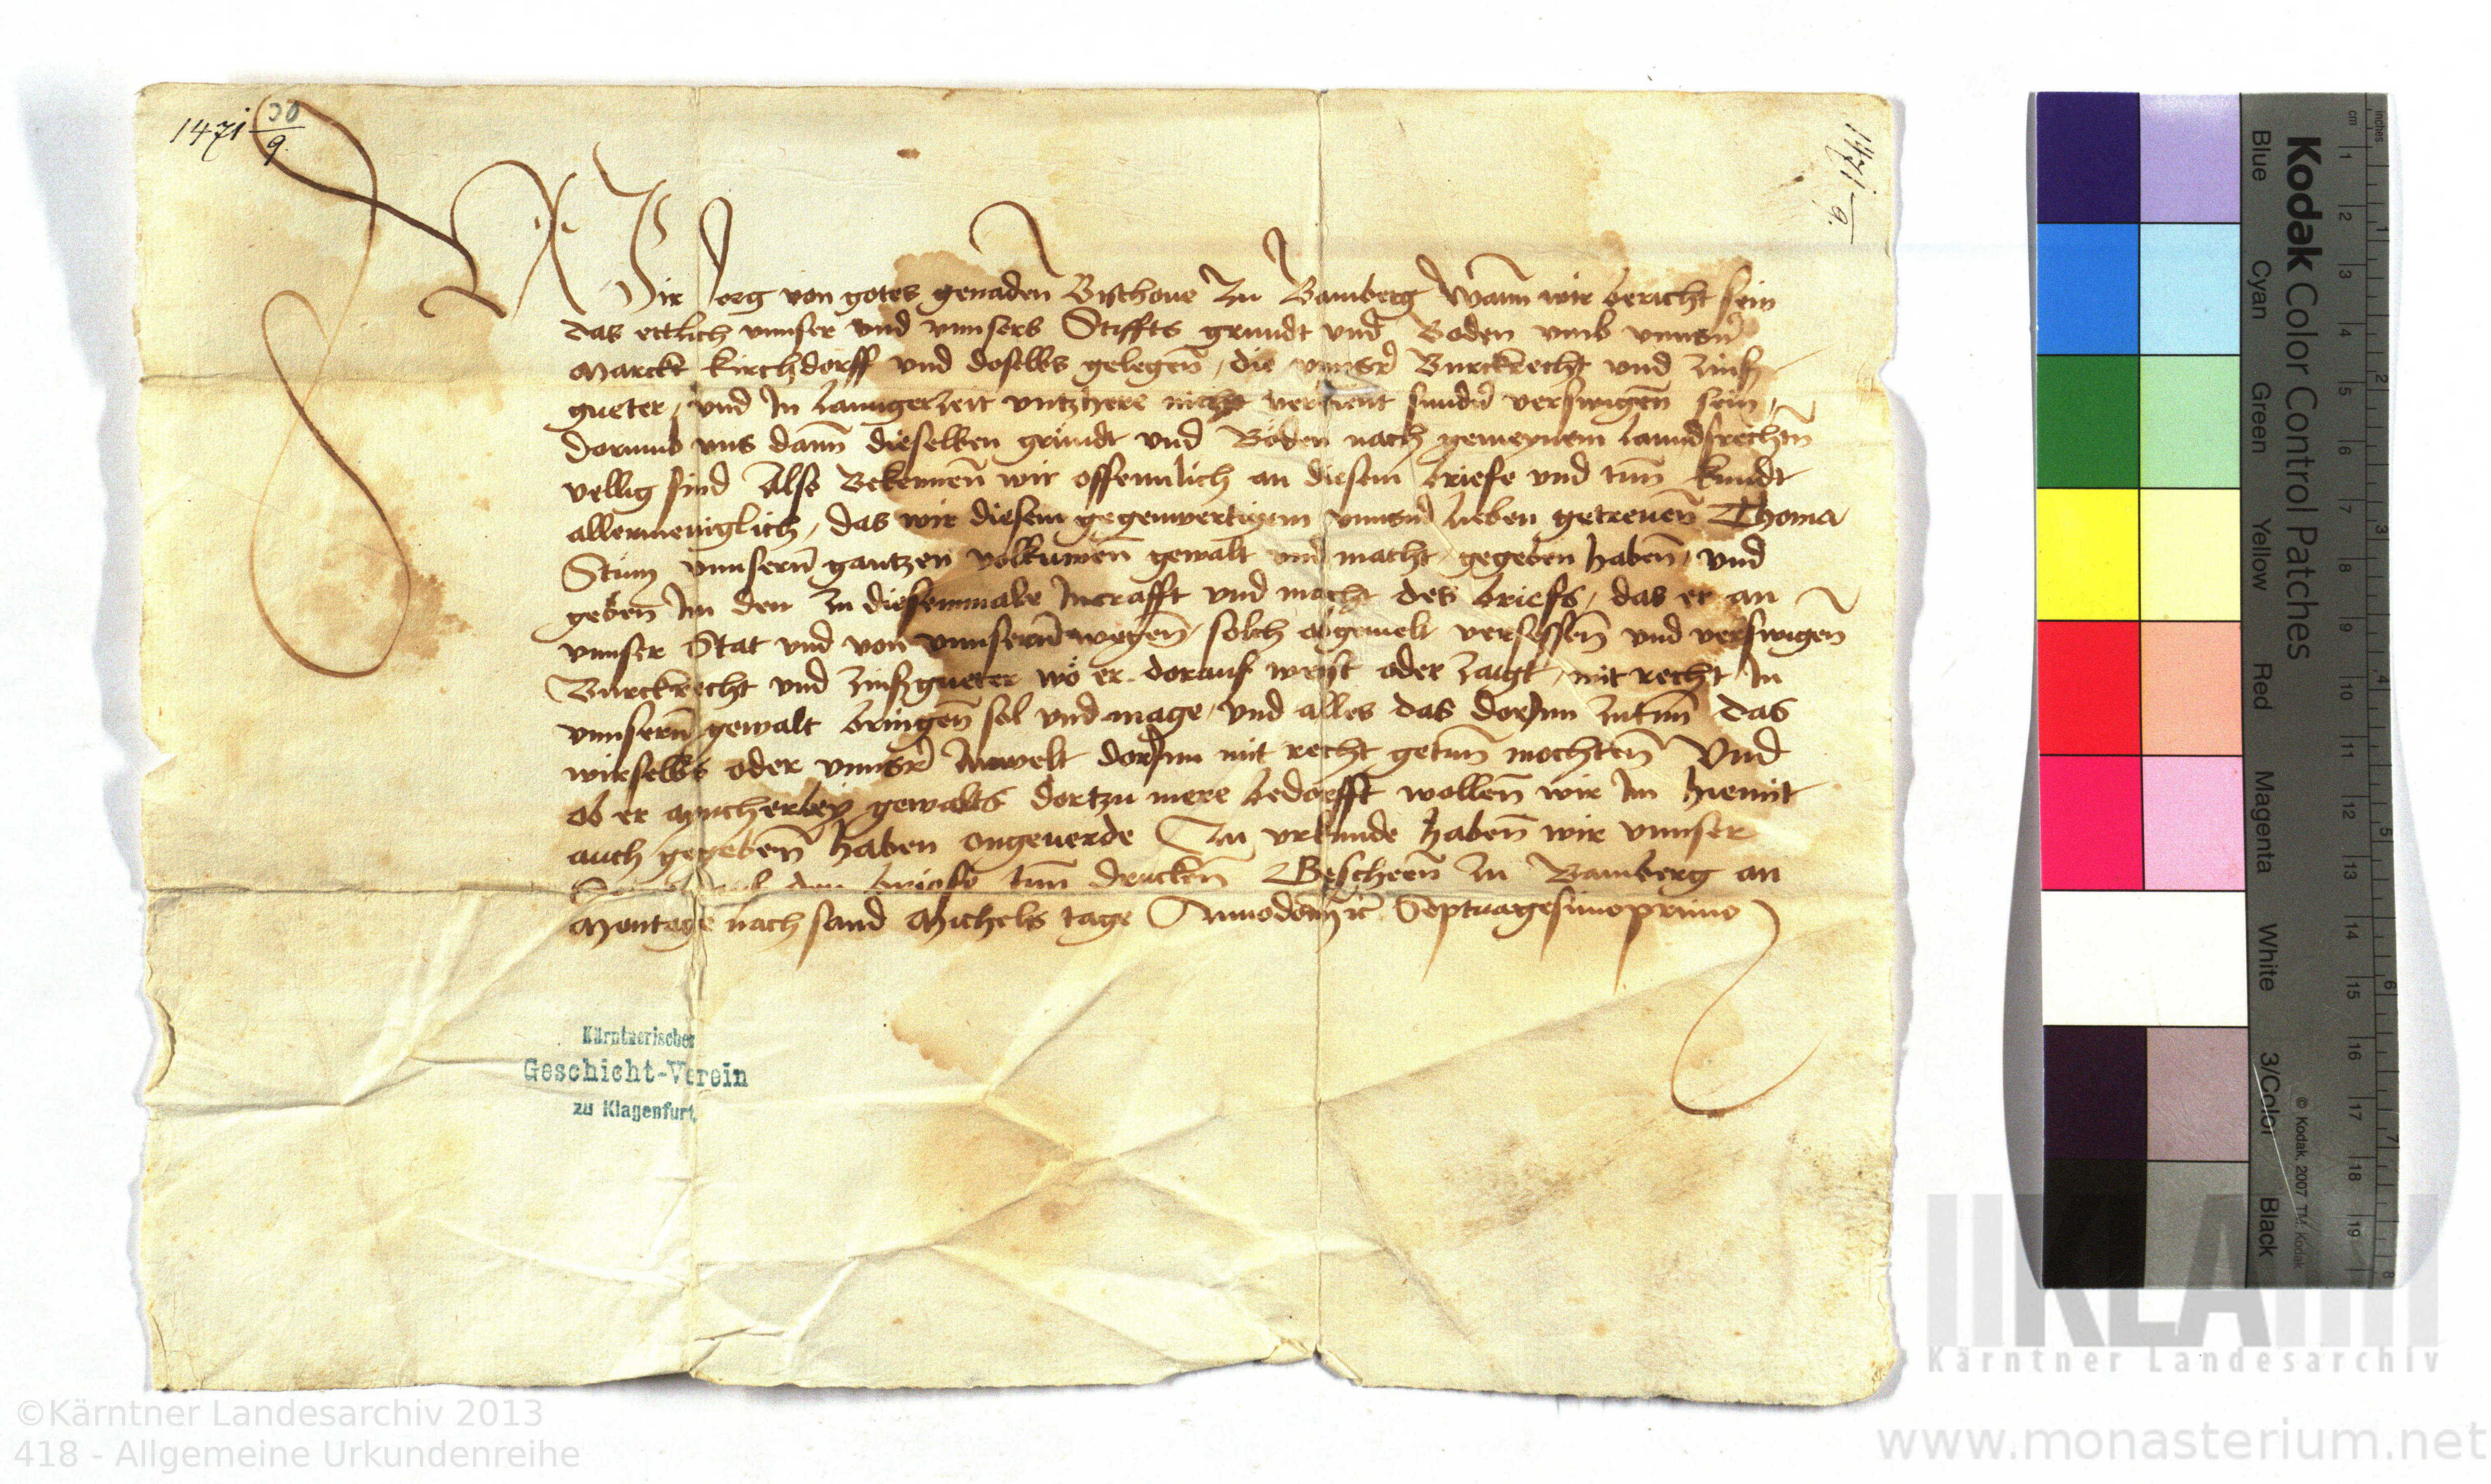 1471 30/9.
1471 9.
Wir Jorg von gotes genaden Bischoue zu Bamberg Wann wir bericht sein
das ettlich vnnser vnd vnnsers Stiffts grundt vnd Boden vmb vnnsern
Marckt kirchdorff vnd doselbs gelegen, die vnnser Burckrecht vnd zinß
gueter, vnd in lannger zeit vntzhere nicht sunder verswigen sein,
dorumb vns dann dieselben gründt vnd Böden nach gemeynem lanndsrechten
vellig sind Also Bekennen wir offennlich an diesem briefe vnd tun kundt
allermeniglich, das wir diesem gegenwertigem vnnserm lieben getreuen Thoma
vnnsern gantzen volkumen gewalt vnd macht gegeben haben, vnd
geben Im den zu diesemmale Incrafft vnd macht des briefs, das er an
vnnser Stat vnd von vnnsern wegen, solch obgemelt versessen vnd verswigen
Burckrecht vnd zinßgueter wo er dorauf weist oder zaigt, mit recht In
vnnsern gewalt bringen sol vnd mage, vnd alles das dorInn zutun das
wirselbs oder vnnser Anwelt dorInn mit recht getun mochten Vnd
ob er eyncherley gewalts dortzu mere bedorfft wollen wir Im hiemit
auch gegeben haben ongeuerde Zu vrkunde haben wir vnnser
den briefe tun drucken Gescheen zu Bamberg an
Montage nach sand Michels tage Annodomini etc Septuagesimoprimo
Kärntnerischer
Geschicht-Verein
zu Klagenfurt.
Kodak Color Control Patches
Blue Cyan Green Yellow Red Magenta White 3/Color Black
© Kodak, 2007 TM: Kodak
inches 1 2 3 4 5 6 7 8
cm 1 2 3 4 5 6 7 8 9 10 11 12 13 14 15 16 17 18 19
KLA
Kärntner Landesarchiv
©Kärntner Landesarchiv 2013
418 - Allgemeine Urkundenreihe
www.monasterium.net